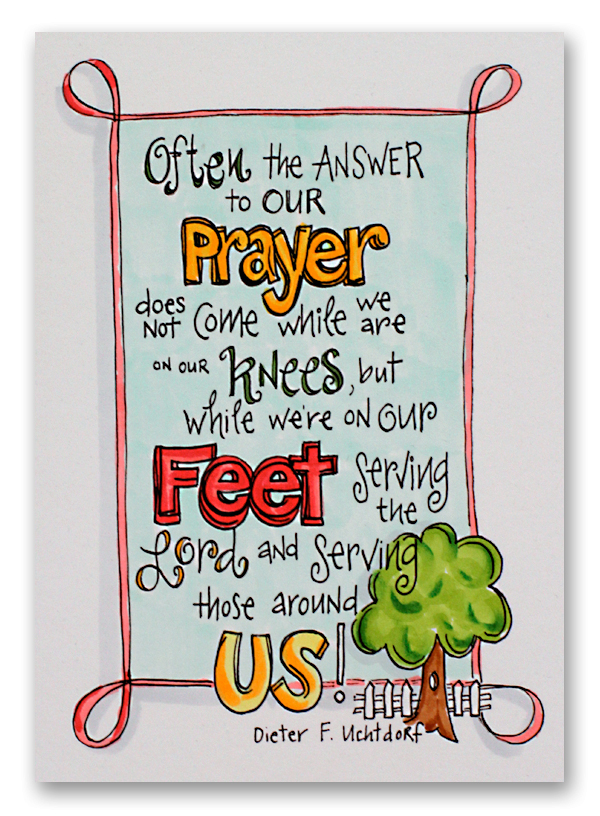 Often the ANSWER
to OUR
Prayer
does Not Come while we are
ON OUR KNEES, but
while we're ON OUR
Feet Serving
the
Lord and Serving
those around
US!
Dieter F. Uchtdorf